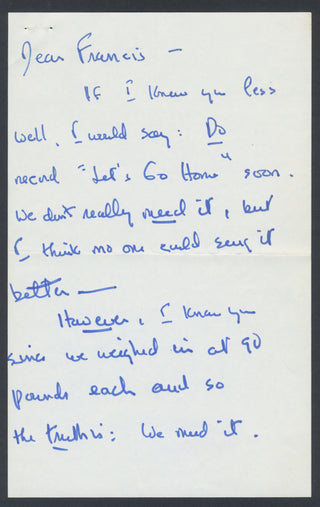 Dear Francis —
If I knew you less
well, I would say: Do
record "Let's Go Home" soon.
We don't really need it, but
I think no one could sing it
better —
However, I knew you
since we weighed in at 90
pounds each and so
the truth is: We need it.